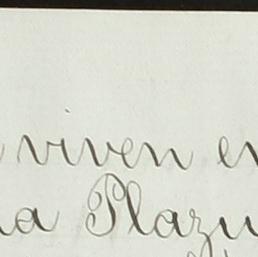 viven en
Plazu